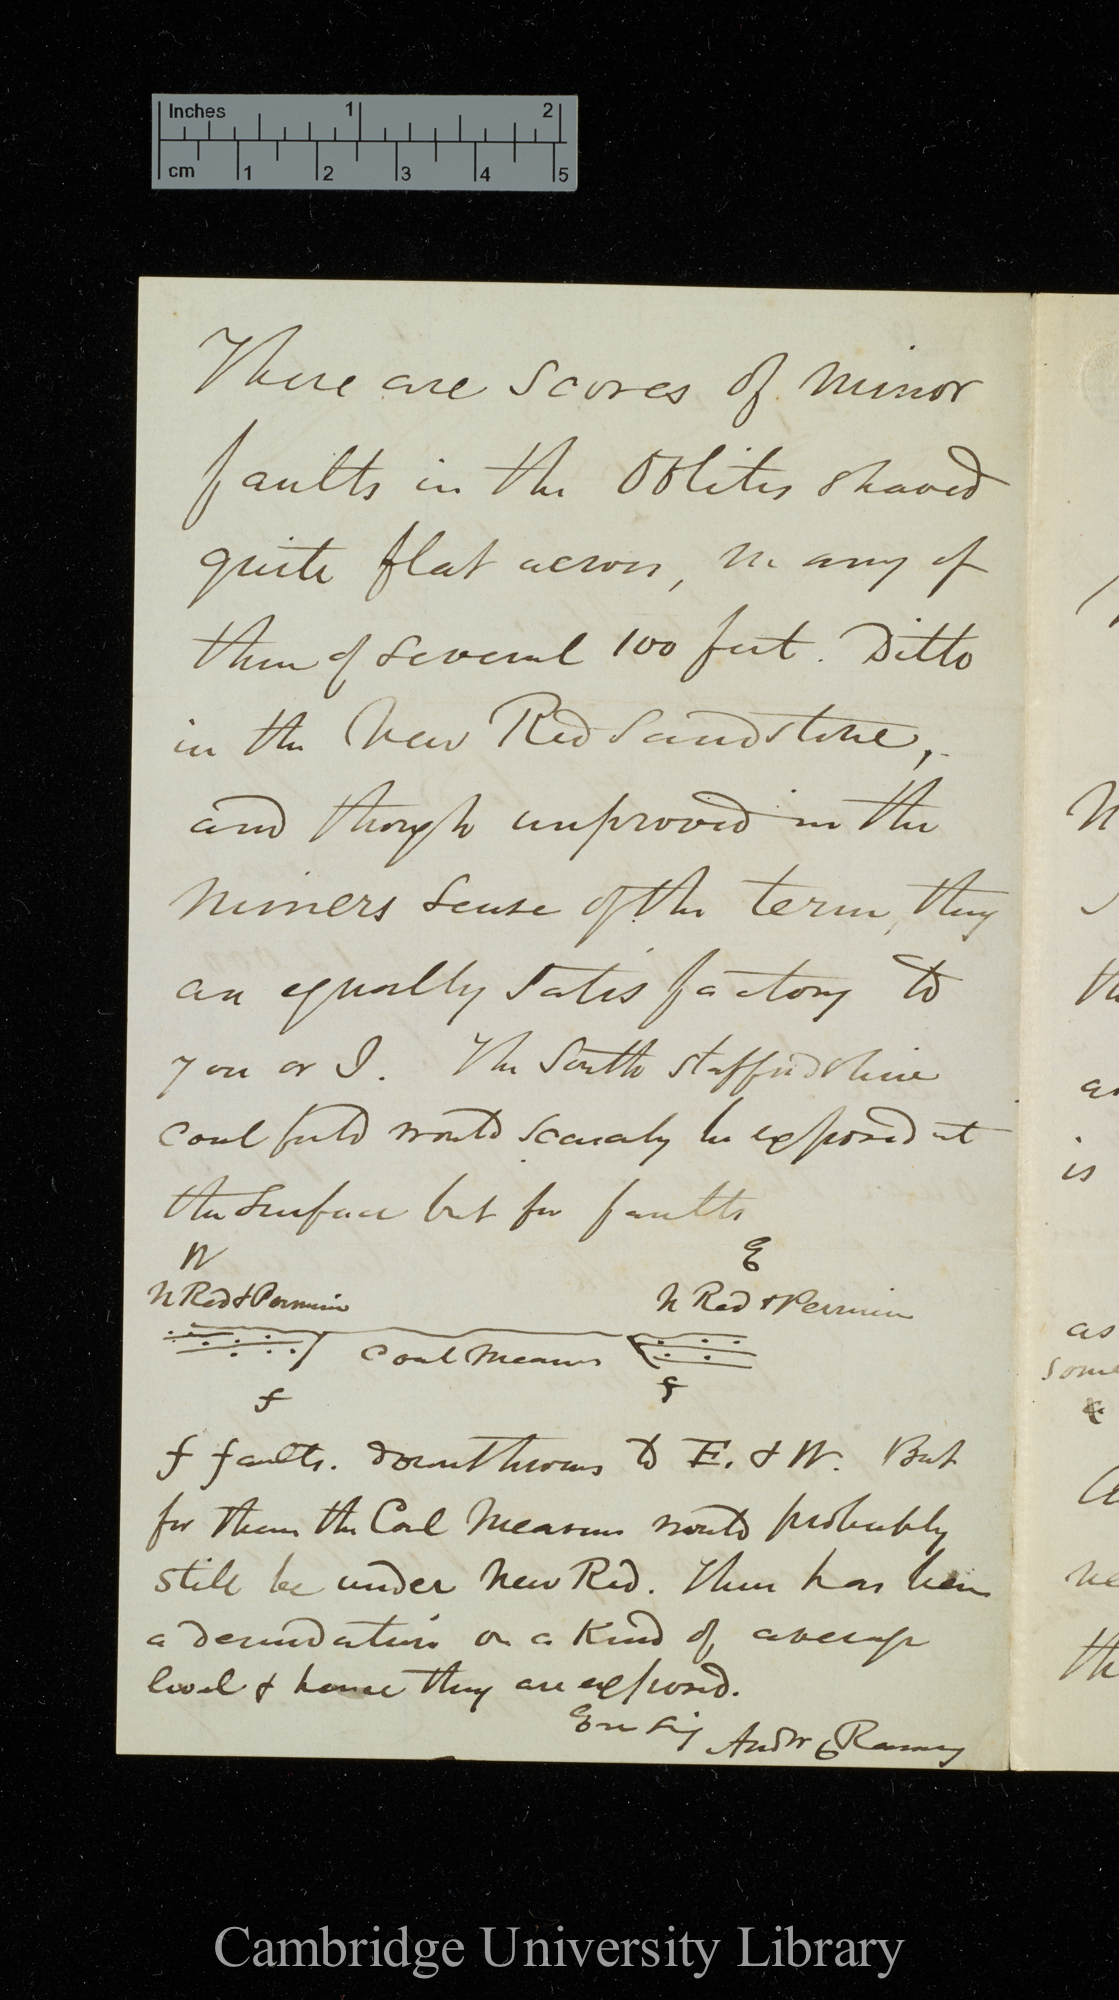 Inches 1 2
cm 1 2 3 4 5
There are scores of minor
faults in the Oolites shaved
quite flat across, many of
them of several 100 feet. Ditto
in the New Red Sandstone,
and though unproved in the
miners sense of the term, they
are equally satisfactory to
you or I. The South Staffordshire
coal field would scarcely be exposed at
the surface but for faults
W E
N Red & Permian N Red & Permian
Coal Measures
f f
f faults. downthrows to E. & W. But
for them the Coal Measures would probably
still be under New Red. There has been
a denudation on a kind of average
level & hence they are exposed.
Ever sinly
Andw C Ramsay
Cambridge University Library